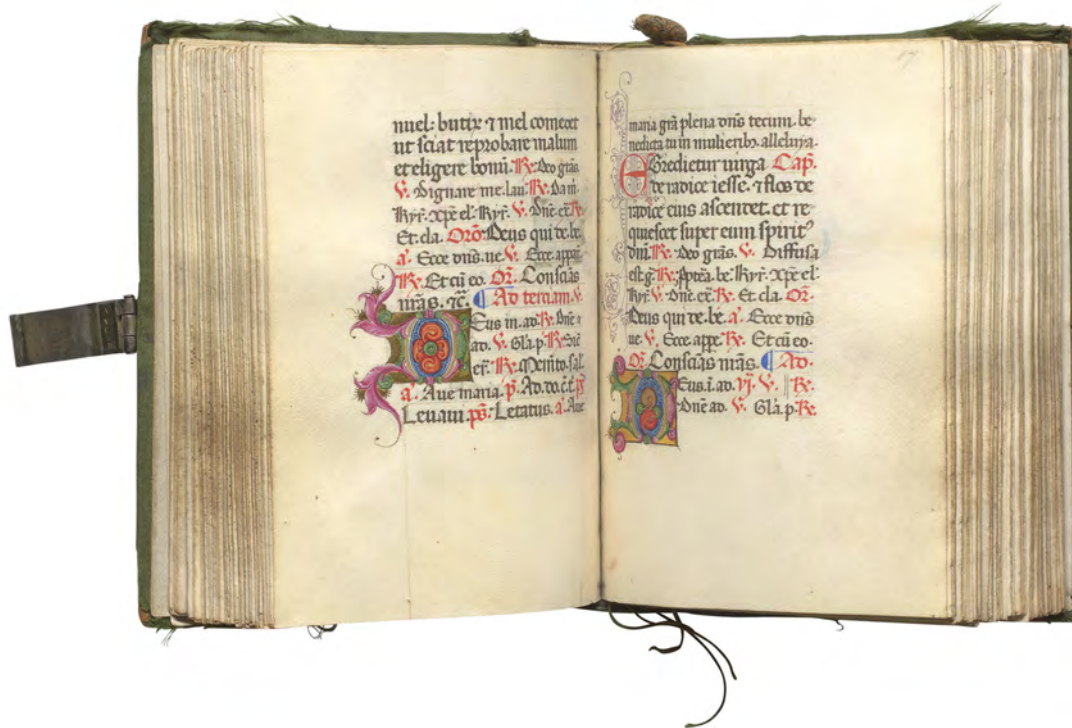 nuel: butiꝝ ⁊ mel comeꝺet
ut sciat reprobare malum
et eligere bonū. ℟. Deo gr̄as.
℣. Dignare me. lau. ℟. Da m̄.
Kyr̄. xp̄e el. Kyr̄. ℣. Dn̄e. ex. ℟.
Et. cla. Orō. Deus qui de. be.
a᷒. Ecce dn̄s. ue. ℣. Ecce. appa.
℟. Et cū eo. Or̄. Conscīas
nr̄as. ⁊c̄. ¶ Ad terciam. ℣.
Deus in. ad. ℟. Dn̄e a
ad. ℣. Gl̄a. p. ℟. Sic̄
er̄. ℟. Memīto. sal.
a᷒. Aue maria. p̄. Ad. do. c̄. t̄. p̄s
Leuaui. ps̄. Letatus. a᷒. Aue
maria gr̄a plena dn̄s tecum. be-
nedicta tu in mulierib᷒. alleluya.
Egredietur uirga Cap̄.
de radice iesse. ⁊ flos de
radice eius ascendet. et re-
quiescet super eum spirit᷒
dn̄i. ℟. Deo gr̄as. ℣. Diffusa
est. g. ℟. ꝓptēa. be. Kyr̄. xp̄e el.
Kyr̄. ℣. Dn̄e. ex. ℟. Et. cla. Or̄.
Deus qui de. be. a᷒. Ecce dn̄s
ue. ℣. Ecce. appe. ℟. Et cū eo.
Or̄. Conscīas nr̄as. ¶ Ad.
Deus. ī. ad. vj. ℣. ℟.
Dn̄e ad. ℣. Gl̄a. p. ℟.